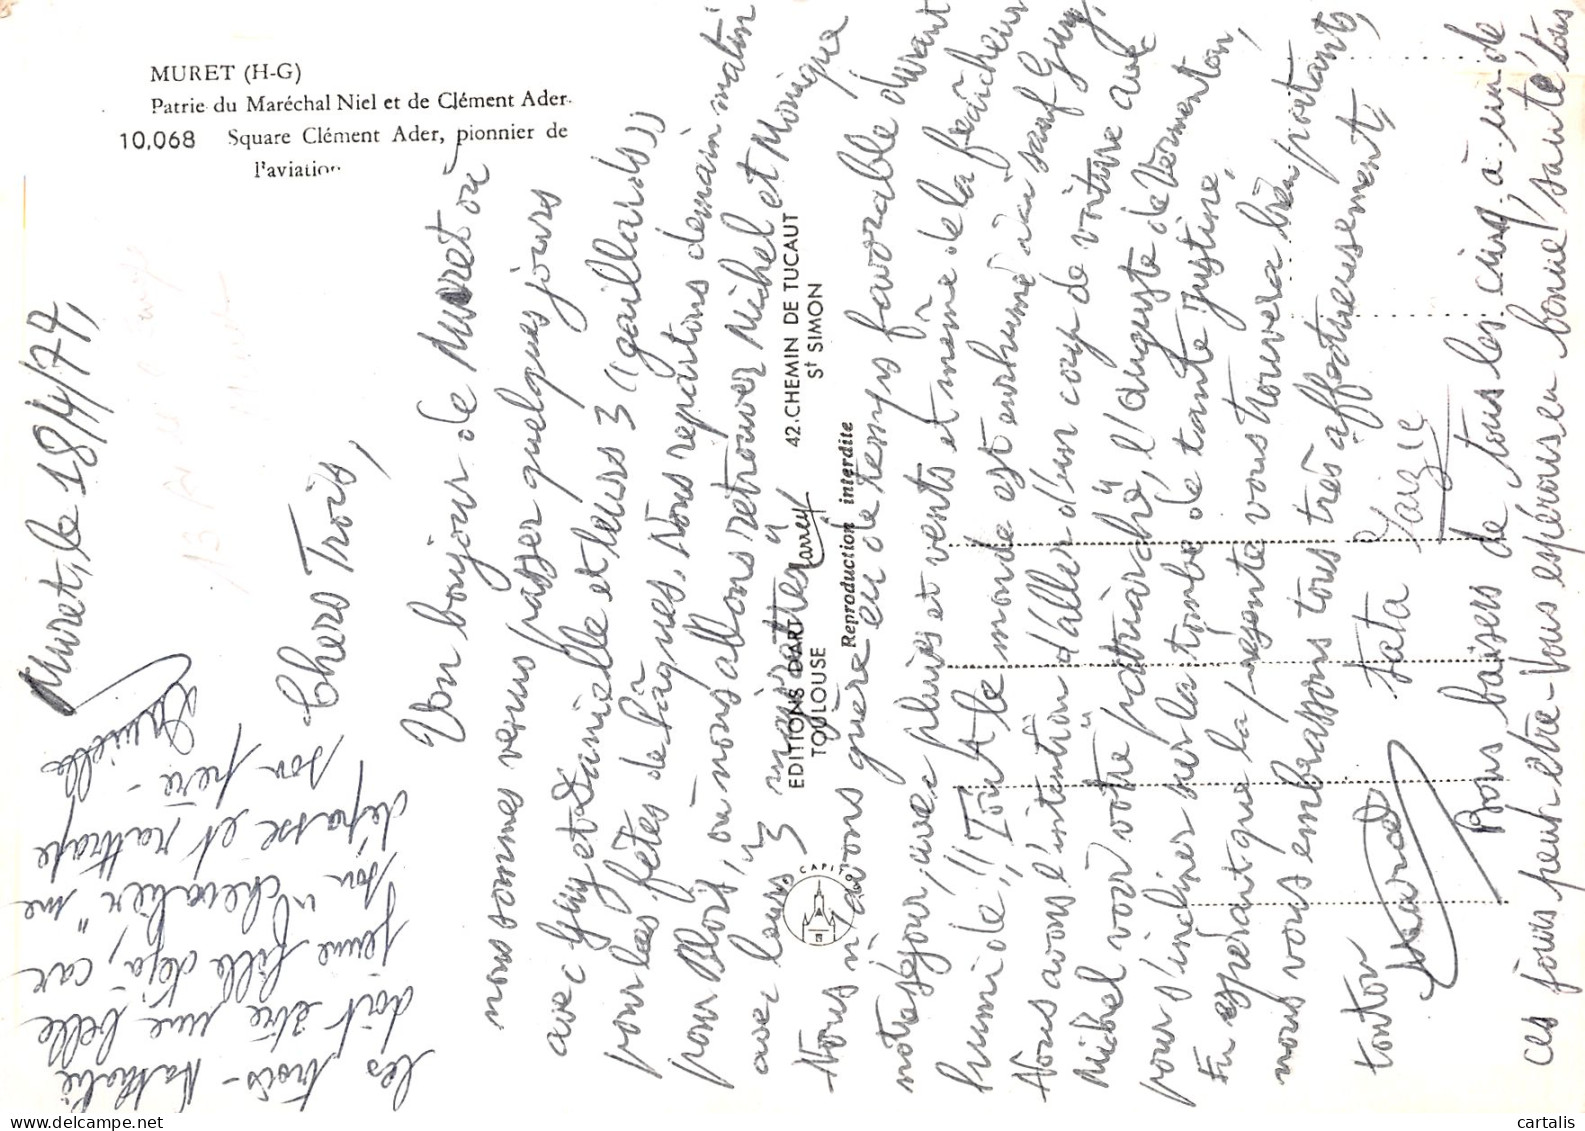 MURET (H-G)
Patrie du Maréchal Niel et de Clément Ader
10,068 Square Clément Ader, pionnier de
l'aviation
Muret, le 18/4/77,
Chers Trois,
Un bonjour de Muret où
nous sommes venus passer quelques jours
avec Guy et Danielle et leurs 3 "gaillards"
pour les fêtes de Pâques. Nous repartons demain matin
pour Blois, où nous allons retrouver Michel et Monique
avec leurs 3
Nous n'avons guère eu de temps favorable durant
notre séjour, avec pluies et vents et même de la fraîcheur
humide!! Tout le monde est enrhumé ici sauf Guy.
Nous avons l'intention d'aller d'un coup de voiture avec
Michel voir votre "patriarche", l'Auguste de Vermenton,
pour s'incliner sur la tombe de tante Justine.
En espérant que la présente vous trouvera bien portants,
nous vous embrassons tous très affectueusement,
tonton tata
Marcel
Bons baisers de tous les cinq. à un de
ces jours peut être - Vous espérons en bonne santé tous
les trois - Nathalie
doit être une belle
jeune fille déjà, car
son "chevalier" me
dépasse et rattrape
son père -
Danielle
EDITIONS D'ART Larrey
TOULOUSE
42.CHEMIN DE TUCAUT
St SIMON
Reproduction interdite
CAPITOLE
cartalis